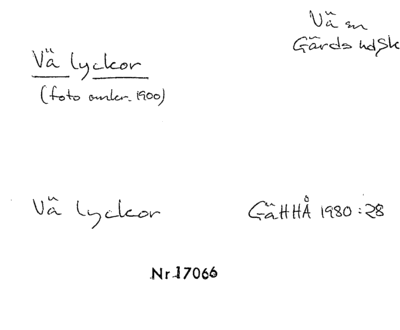 Vä sn
Gärds hd Sk
Vä lyckor
(foto omkr. 1900)
Vä lyckor
GäHHÅ 1980:28
Nr 17066